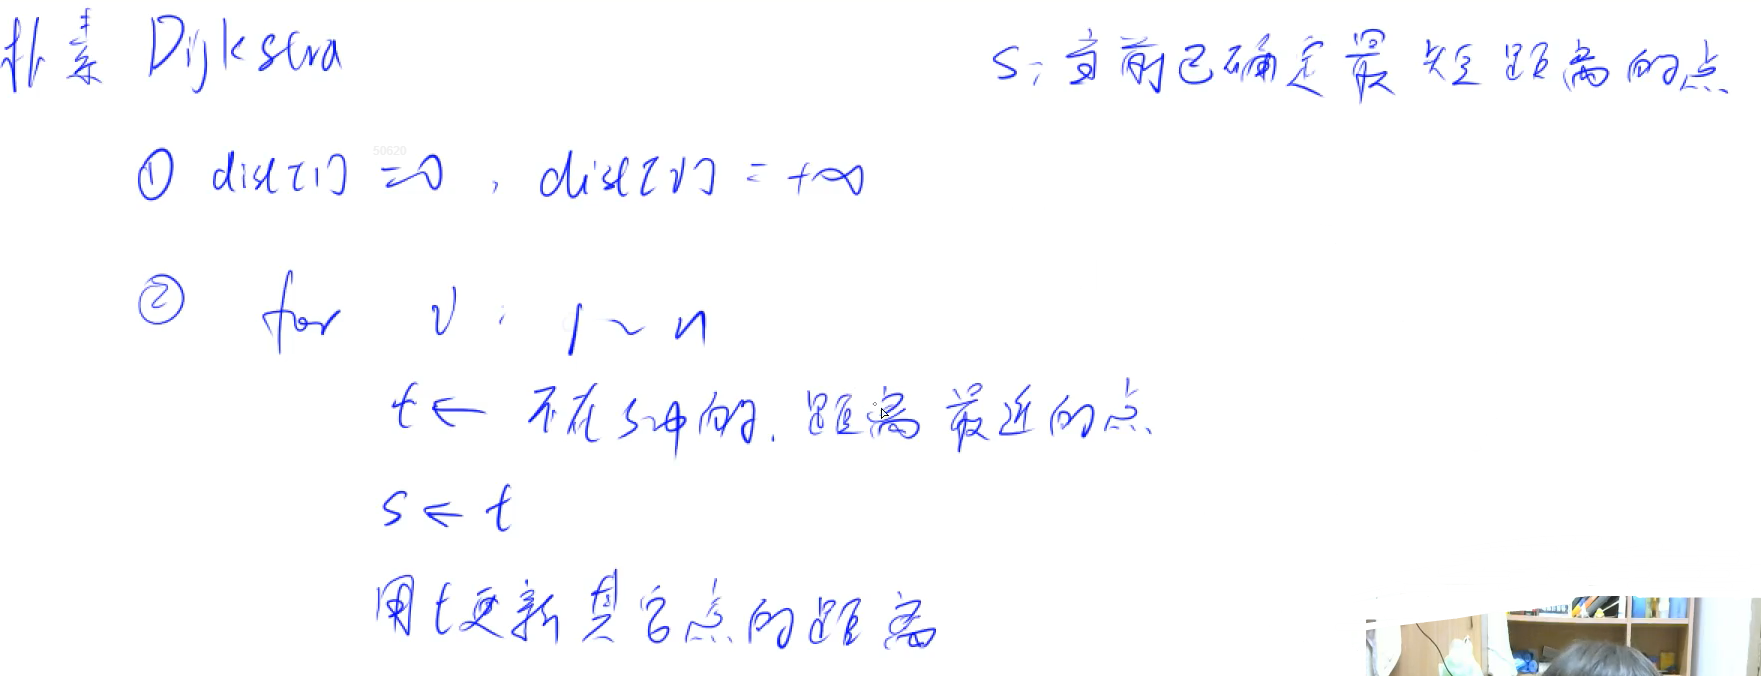 朴素 Dijkstra
S: 当前已确定最短距离的点
① dist[1] = 0, dist[i] = +∞
50620
② for i: 1~n
t ← 不在S中的, 距离最近的点
S ← t
用t更新其它点的距离